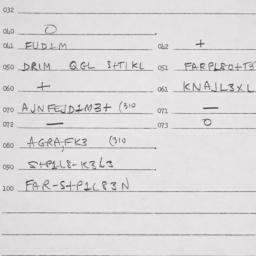 032
040 O
041 FUD1M 042 +
050 DRIM QGL S+TIKL 051
060 + 061 KNAJL3XL
070 AJNFEJD1M3+ (310 071 —
072 — 073 O
080 AGRAJFK3 (310
090
100 FAR-S+P1L83N